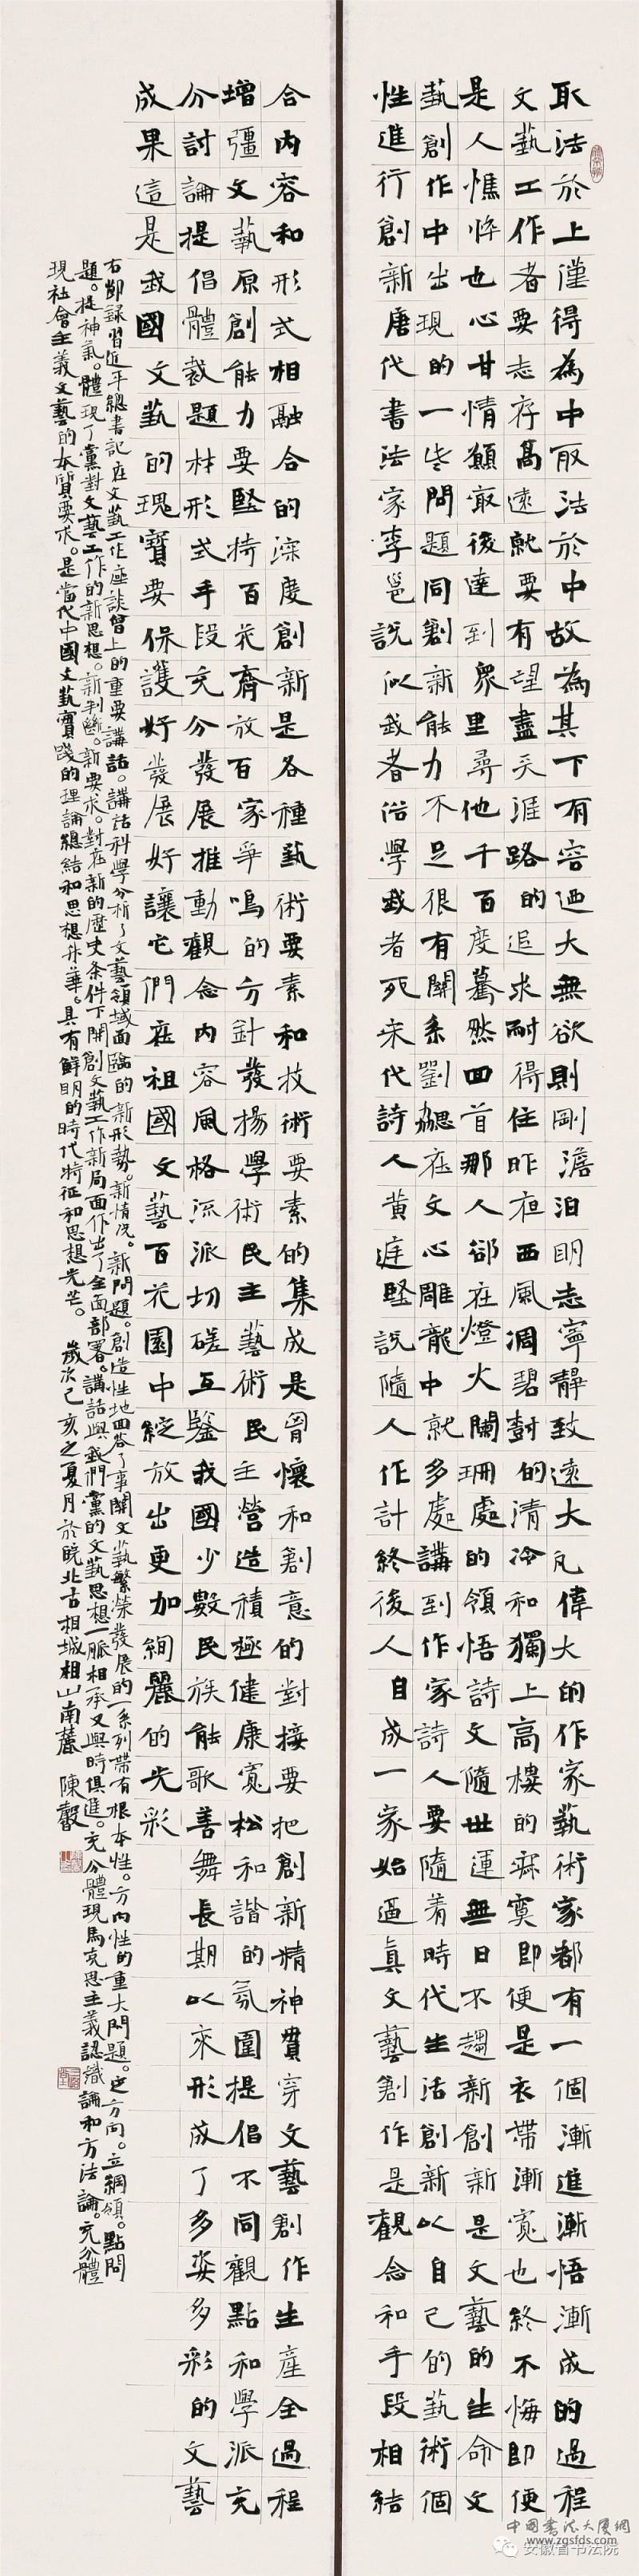 取法於上僅得為中取法於中故為其下有容迺大無欲則剛澹泊明志寧靜致遠大凡偉大的作家藝術家都有一個漸進漸悟漸成的過程
文藝工作者要志存高遠就要有望盡天涯路的追求耐得住昨夜西風凋碧樹的清冷和獨上高樓的寂寞即便是衣帶漸寬也終不悔即便
是人憔悴也心甘情願最後達到眾里尋他千百度驀然回首那人卻在燈火闌珊處的領悟詩文隨世運無日不趨新創新是文藝的生命文
藝創作中出現的一些問題同創新能力不足很有關系劉勰在文心雕龍中就多處講到作家詩人要隨着時代生活創新以自己的藝術個
性進行創新唐代書法家李邕說似我者俗學我者死宋代詩人黃庭堅說隨人作計終後人自成一家始逼真文藝創作是觀念和手段相結
合內容和形式相融合的深度創新是各種藝術要素和技術要素的集成是胸懷和創意的對接要把創新精神貫穿文藝創作生產全過程
增彊文藝原創能力要堅持百花齊放百家爭鳴的方針發揚學術民主藝術民主營造積極健康寬松和諧的氛圍提倡不同觀點和學派充
分討論提倡體裁題材形式手段充分發展推動觀念內容風格流派切磋互鑒我國少數民族能歌善舞長期以來形成了多姿多彩的文藝
成果這是我國文藝的瑰寶要保護好發展好讓它們在祖國文藝百花園中綻放出更加絢麗的光彩
右節錄習近平總書記在文藝工作座談會上的重要講話。講話科學分析了文藝領域面臨的新形勢。新情況。新問題。創造性地回答了事關文藝繁榮發展的一系列帶有根本性。方向性的重大問題。定方向。立綱領。點問
題。提神氣。體現了黨對文藝工作的新思想。新判斷。新要求。對在新的歷史条件下開創文藝工作新局面作出了全面部署。講話與我們黨的文藝思想一脈相承又與時俱進。充分體現馬克思主義認識論和方法論。充分體
現社會主義文藝的本質要求。是當代中國文藝實踐的理論總結和思想升華。具有鮮明的時代特征和思想光芒。 歲次己亥之夏月於皖北古相城相山南麓 陳
中國書法大廈網
www.zgsfds.com
安徽省书法院